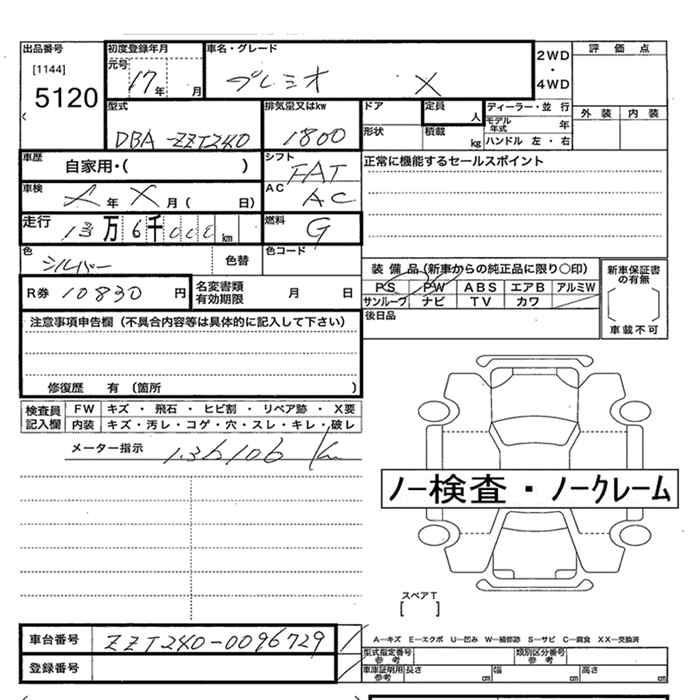 出品番号 初度登録年月 車名・グレード 2WD・4WD 評価点
[1144] 元号 17年 月 プレミオ X
5120
外装 内装
型式 排気量又はkw ドア 定員 人 ディーラー・並行
モデル年式 年
DBA-ZZT240 1800 形状 積載 kg ハンドル 左・右
車歴 自家用・( ) シフト FAT 正常に機能するセールスポイント
車検 年 X 月 ( 日) AC AC
走行 13万6千 km 燃料 G
色 シルバー 色替 色コード
装備品(新車からの純正品に限り○印) 新車保証書の有無
R券 10830円 名変書類有効期限 月 日 PS PW ABS エアB アルミW
サンルーフ ナビ TV カワ 車載不可
注意事項申告欄(不具合内容等は具体的に記入して下さい) 後日品
修復歴 有 (箇所 )
検査員記入欄 FW キズ・飛石・ヒビ割・リペア跡・X要
内装 キズ・汚レ・コゲ・穴・スレ・キレ・破レ
メーター指示 136106 Km
ノー検査・ノークレーム
スペアT
[ ]
車台番号 ZZT240-0096729 A―キズ E―エクボ U―凹み W―補修跡 S―サビ C―腐食 XX―交換済
型式指定番号 参考 類別区分番号 参考
登録番号 車庫証明用 参考 長さ cm 幅 cm 高さ cm